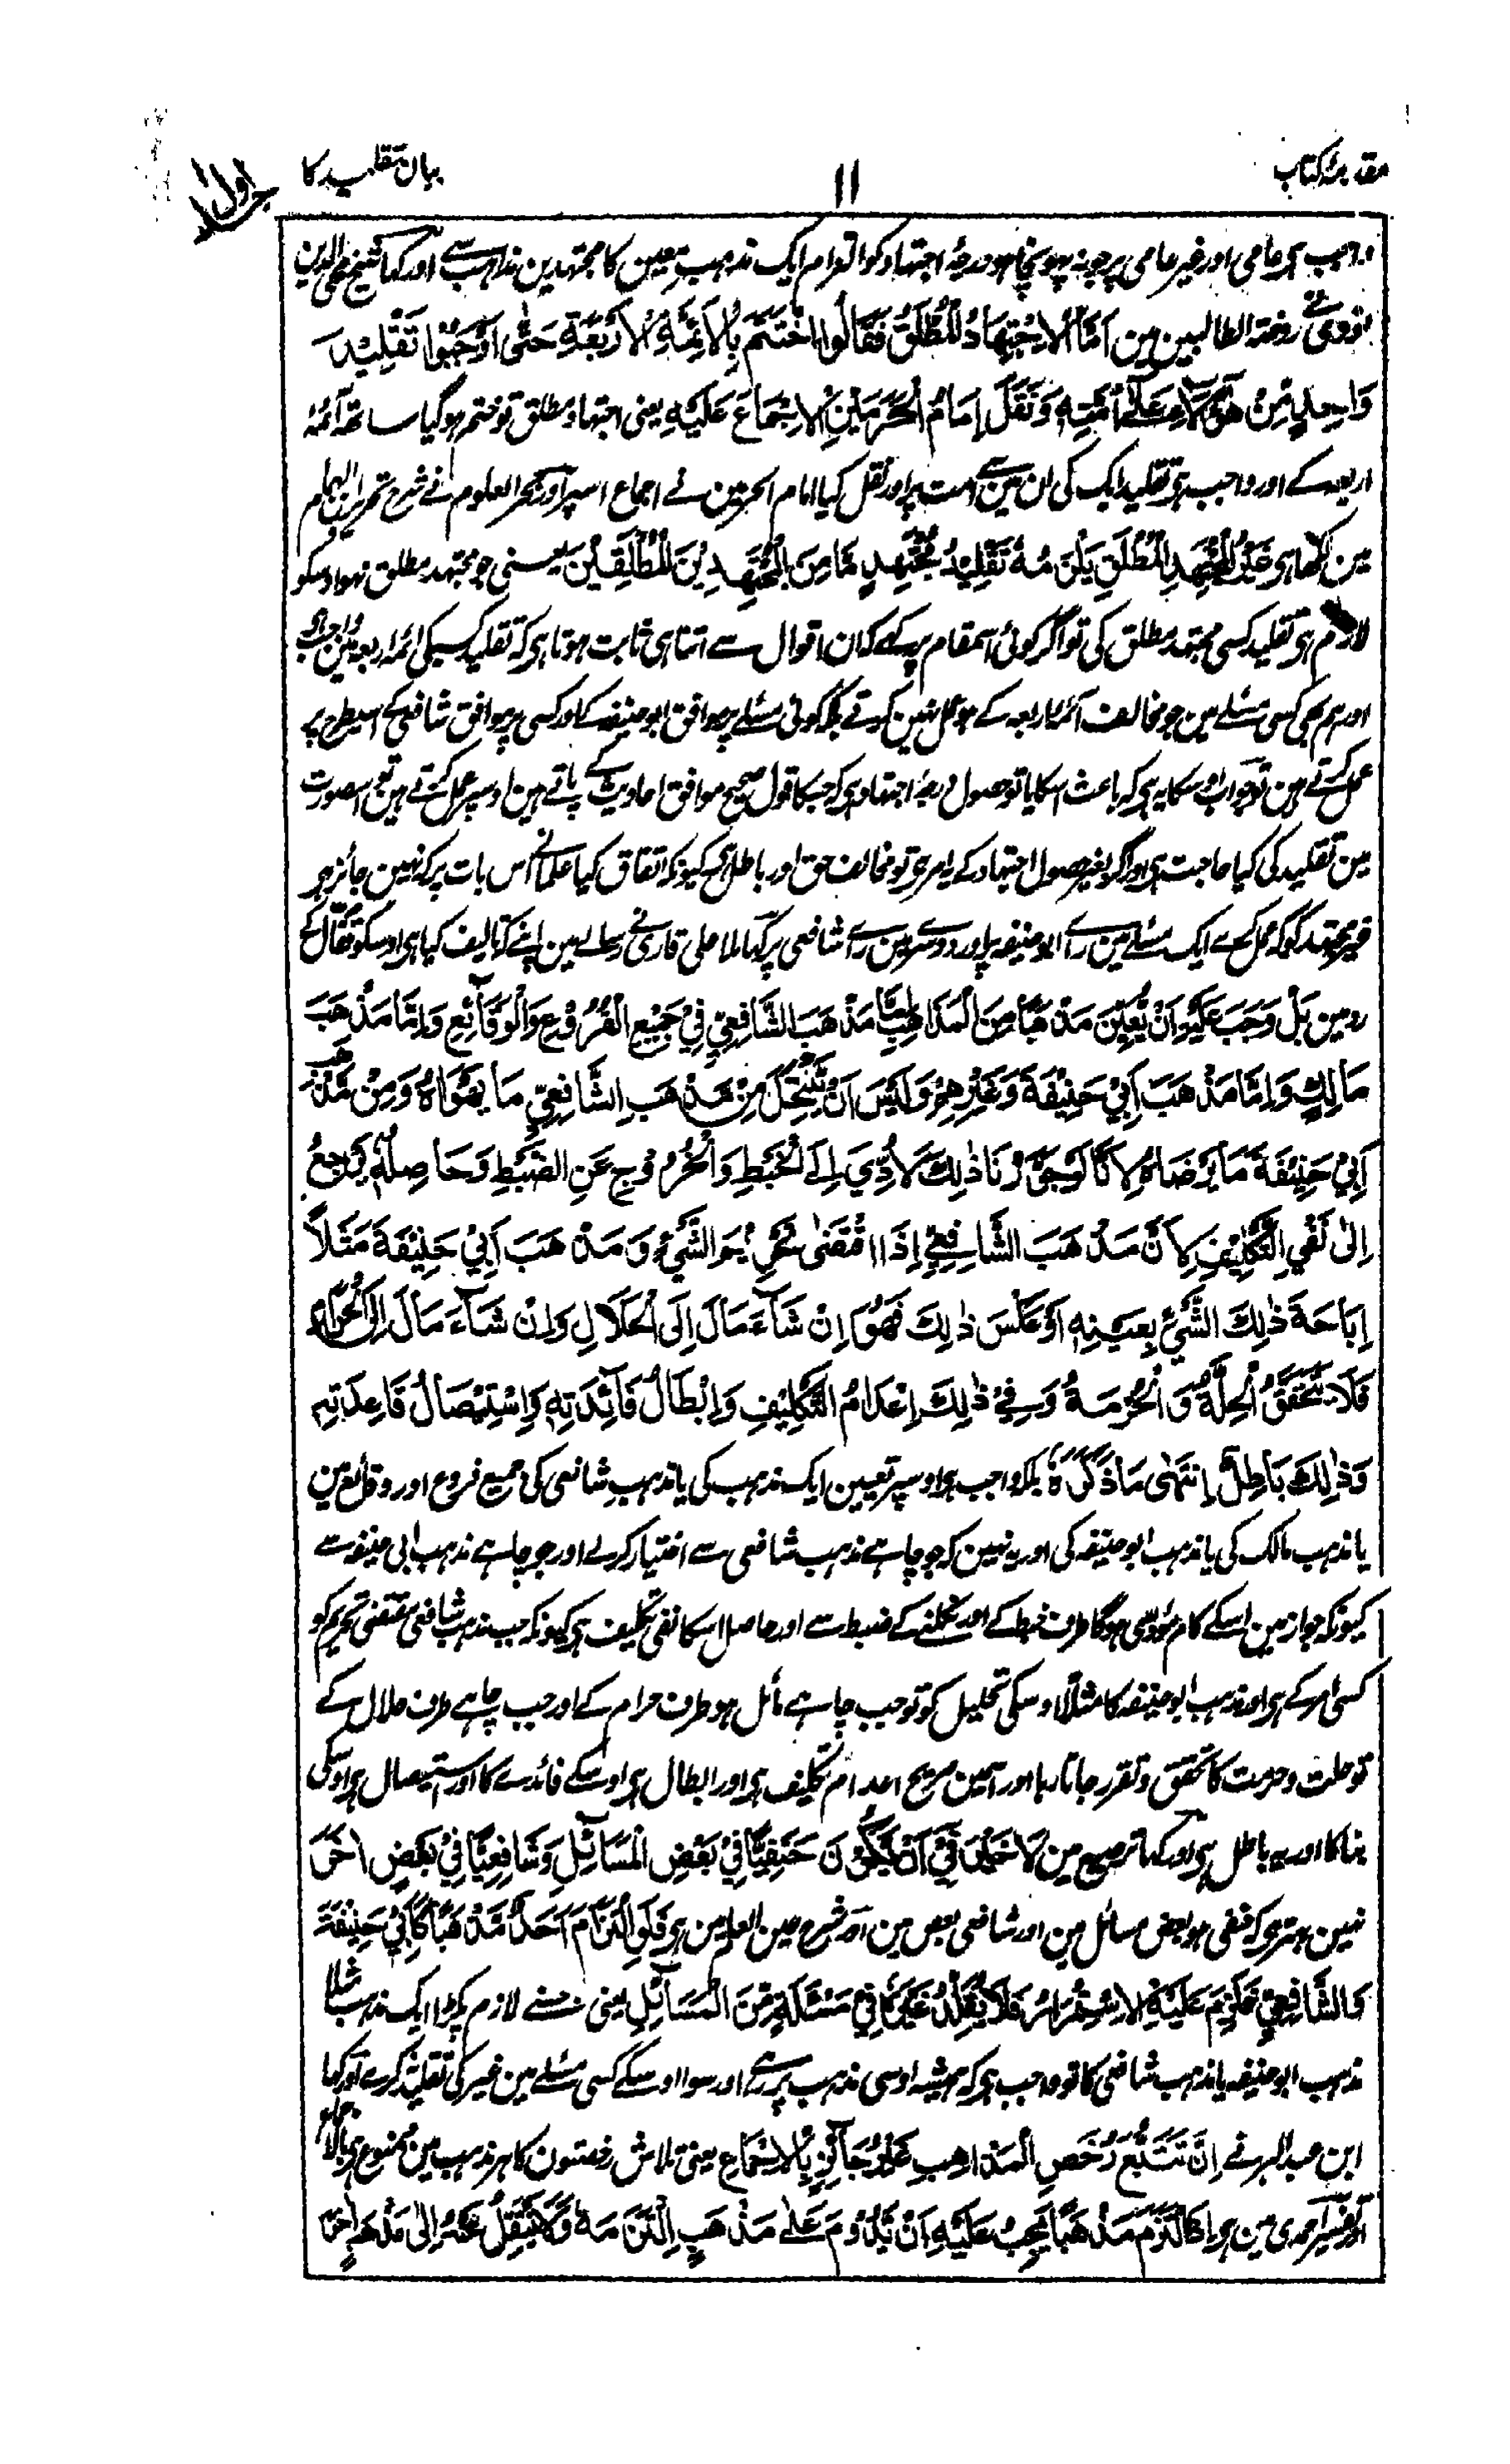 مقدمۂ کتاب
۱۱
بیان تقلید کا
جلد اول
واجب ہی عامی اور غیر عامی پر جو نہ پہونچا ہو درجۂ اجتہاد کو التزام ایک مذہب معین کا مجتہدین مذاہب سے اور کہا شیخ محی الدین
نووی نے روضۃ الطالبین مین اَمَّا الْاِجْتِهَادُ الْمُطْلَقُ فَقَالُوا اخْتَتَمَ بِالْاَئِمَّةِ الْاَرْبَعَةِ حَتّٰى اَوْجَبُوْا تَقْلِيْدَ
وَاحِدٍ مِّنْ هٰؤُلَاءِ عَلٰى اُمَّتِهٖ وَنَقَلَ اِمَامُ الْحَرَمَيْنِ الْاِجْمَاعَ عَلَيْهِ یعنی اجتہاد مطلق تو ختم ہو گیا ساتھ آئمۂ
اربعہ کے اور واجب ہی تقلید ایک کی ان مین سے امت پر اور نقل کیا امام الحرمین نے اجماع اسپر اور بحر العلوم نے شرح تحریر ابن الہمام
مین لکھا ہی غَيْرُ الْمُجْتَهِدِ الْمُطْلَقِ يَلْزَمُهُ تَقْلِيْدُ مُجْتَهِدٍ مَّا مِنَ الْمُجْتَهِدِيْنَ الْمُطْلَقِيْنَ یعنی جو مجتہد مطلق نہو اوسکو
لازم ہی تقلید کسی مجتہد مطلق کی تو اگر کوئی اسمقام پر کہے کہ ان اقوال سے اتنا ہی ثابت ہوتا ہی کہ تقلید کسیکی ائمہ اربعہ مین واجب ہی
اور ہم بھی کسی مسئلے مین جو مخالف آئمہ اربعہ کے ہو عمل نہین کرتے بلکہ کوئی مسئلے پر موافق ابو حنیفہ کے اور کسی پر موافق شافعی کے اسیطرح پر
عمل کرتے ہین تو جواب اوسکا یہ ہی کہ باعث اسکا یا تو حصول درجۂ اجتہاد ہی کہ جسکا قول صحیح موافق احادیث کے پاتے ہین اوسپر عمل کرتے ہین تو اسصورت
مین تقلید کی کیا حاجت ہی اور اگر بغیر حصول اجتہاد کے یہ امر ہی تو مخالف حق اور باطل ہی کیونکہ اتفاق کیا علما نے اس بات پر کہ نہین جائز ہی
غیر مجتہد کو کہ عمل کرے ایک مسئلے مین راے ابو حنیفہ پر اور دوسرے مین راے شافعی پر کہا ملا علی قاری نے رسالے مین اپنے کہ تالیف کیا ہی اوسکو قفال کے
رد مین بَلْ وَجَبَ عَلَيْهِ اَنْ يُّعَيِّنَ مَذْهَبًا مِنَ الْمَذَاهِبِ اِمَّا مَذْهَبَ الشَّافِعِيِّ فِيْ جَمِيْعِ الْفُرُوْعِ وَالْوَقَائِعِ وَاِمَّا مَذْهَبَ
مَالِكٍ وَاِمَّا مَذْهَبَ اَبِيْ حَنِيْفَةَ وَغَيْرِهِمْ وَلَيْسَ اَنْ يَّنْتَحِلَ مِنْ مَذْهَبِ الشَّافِعِيِّ مَا يَهْوَاهُ وَمِنْ مَّذْهَبِ
اَبِيْ حَنِيْفَةَ مَا يَرْضَاهُ لِاَنَّا لَوْ جَوَّزْنَا ذٰلِكَ لَاَدّٰى اِلَى الْخَبْطِ وَالْخُرُوْجِ عَنِ الضَّبْطِ وَحَاصِلُهٗ يَرْجِعُ
اِلٰى نَفْيِ التَّكْلِيْفِ لِاَنَّ مَذْهَبَ الشَّافِعِيِّ اِذَا اقْتَضٰى تَحْرِيْمَ الشَّيْءِ وَمَذْهَبَ اَبِيْ حَنِيْفَةَ مَثَلًا
اِبَاحَةَ ذٰلِكَ الشَّيْءِ بِعَيْنِهٖ اَوْ عَكْسَ ذٰلِكَ فَهُوَ اِنْ شَآءَ مَالَ اِلَى الْحَلَالِ وَاِنْ شَآءَ مَالَ اِلَى الْحَرَامِ
فَلَا يَتَحَقَّقُ الْحِلَّةُ وَالْحُرْمَةُ وَفِيْ ذٰلِكَ اِعْدَامُ التَّكْلِيْفِ وَاِبْطَالُ فَآئِدَتِهٖ وَاسْتِيْصَالُ قَاعِدَتِهٖ
وَذٰلِكَ بَاطِلٌ اِنْتَهٰى مَا ذَكَرَهٗ بلکہ واجب ہی اوسپر تعیین ایک مذہب کی یا مذہب شافعی کی جمیع فروع اور وقائع مین
یا مذہب مالک کی یا مذہب ابو حنیفہ کی اور یہ نہین کہ جو چاہے مذہب شافعی سے اختیار کرلے اور جو چاہے مذہب ابی حنیفہ سے
کیونکہ جواز مین اسکے کام مؤدی ہوگا طرف خبط کے اور نکلنے کے ضبط سے اور حاصل اسکا نفی تکلیف ہی کیونکہ جب مذہب شافعی مقتضی تحریم کو
کسی امر کے ہی اور مذہب ابو حنیفہ کا مثلًا اوسکی تحلیل کو تو جب چاہے مائل ہو طرف حرام کے اور جب چاہے طرف حلال کے
تو حلت و حرمت کا تحقق و تقرر جاتا رہا اور اسمین صریح اعدام تکلیف ہی اور ابطال ہی اوسکے فائدے کا اور استیصال ہی اوسکی
بنا کا اور یہ باطل ہی اور کہا توضیح مین لَا خَيْرَ فِيْ اَنْ يَّكُوْنَ حَنَفِيًّا فِيْ بَعْضِ الْمَسَآئِلِ وَشَافِعِيًّا فِيْ بَعْضٍ اٰخَرَ
نہین بہتر ہی کہ حنفی ہو بعض مسائل مین اور شافعی بعض مین اور شرح عین العلم مین ہی فَلَوِ الْتَزَمَ اَحَدٌ مَّذْهَبًا كَاَبِيْ حَنِيْفَةَ
وَالشَّافِعِيِّ فَلَزِمَ عَلَيْهِ الْاِسْتِمْرَارُ فَلَا يُقَلِّدُ غَيْرَهٗ فِيْ مَسْئَلَةٍ مِّنَ الْمَسَآئِلِ یعنی جسنے لازم پکڑا ایک مذہب مثلًا
مذہب ابو حنیفہ یا مذہب شافعی کا تو واجب ہی کہ ہمیشہ اوسی مذہب پر رہے اور سوا اوسکے کسی مسئلے مین غیر کی تقلید نکرے اور کہا
ابن عبد البر نے اِنَّ تَتَبُّعَ رُخَصِ الْمَذَاهِبِ غَيْرُ جَآئِزٍ بِالْاِجْمَاعِ یعنی تلاش رخصتون کا ہر مذہب مین ممنوع ہی بالاجماع
اور تفسیر احمدی مین ہی اِذَا الْتَزَمَ مَذْهَبًا يَجِبُ عَلَيْهِ اَنْ يَّدُوْمَ عَلٰى مَذْهَبٍ اِلْتَزَمَهٗ وَلَا يَنْتَقِلُ عَنْهُ اِلٰى مَذْهَبٍ اٰخَرَ